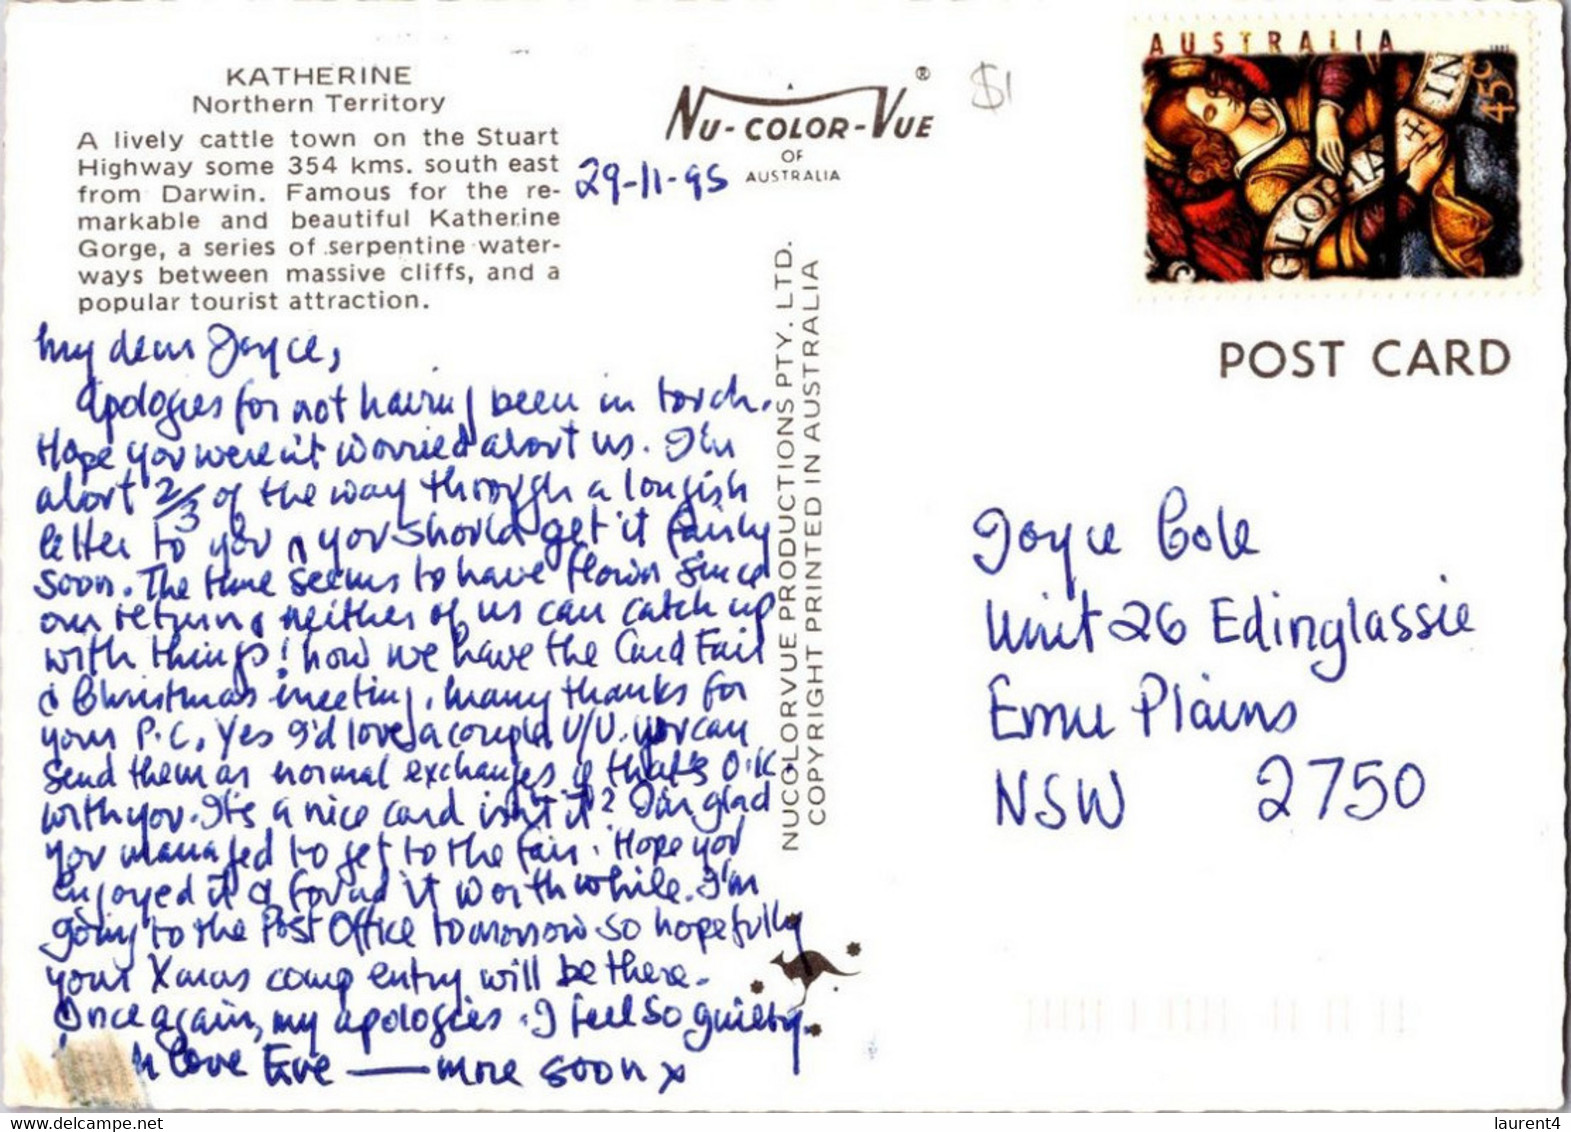 KATHERINE
Northern Territory
A lively cattle town on the Stuart
Highway some 354 kms. south east
from Darwin. Famous for the re-
markable and beautiful Katherine
Gorge, a series of serpentine water-
ways between massive cliffs, and a
popular tourist attraction.
NU-COLOR-VUE ®
OF
AUSTRALIA
$1
29-11-95
AUSTRALIA
45c
GLORIA IN
POST CARD
My dear Joyce,
Apologies for not having been in touch.
Hope you weren't worried about us. I'm
about 2/3 of the way through a longish
letter to you, you should get it fairly
soon. The time seems to have flown since
our return & neither of us can catch up
with things! Now we have the Card Fair
& Christmas meeting. Many thanks for
your P.C. Yes I'd love a couple U/U. You can
send them as normal exchanges if that's O.K.
with you. It's a nice card isn't it? I'm glad
you managed to get to the fair. Hope you
enjoyed it & found it worthwhile. I'm
going to the Post Office tomorrow so hopefully
your Xmas comp entry will be there.
Once again, my apologies. I feel so guilty.
love Eve — more soon x
NUCOLORVUE PRODUCTIONS PTY. LTD.
COPYRIGHT PRINTED IN AUSTRALIA
Joyce Cole
Unit 26 Edinglassie
Emu Plains
NSW 2750
delcampe.net
laurent4